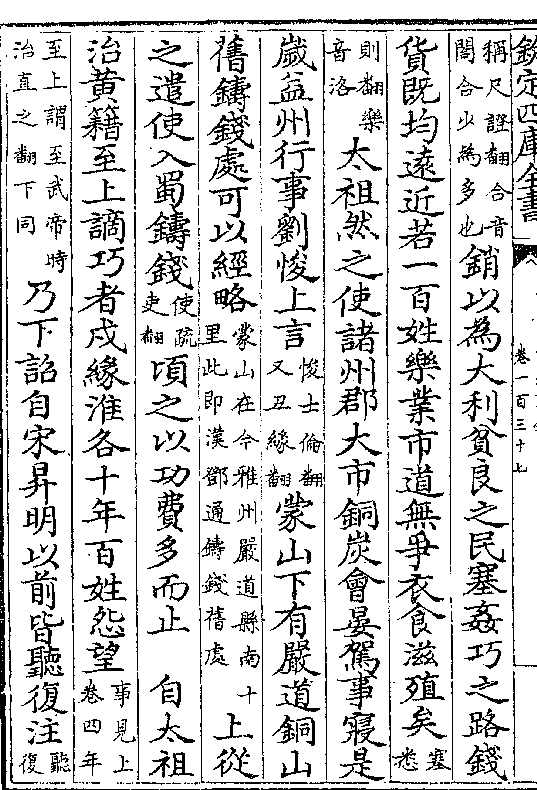 欽定四庫全書
卷一百三十七
稱尺證翻合音
閤合少為多也
銷以為大利貧良之民塞姦巧之路錢
貨既均遠近若一百姓樂業市道無爭衣食滋殖矣
塞悉
則翻樂
音洛
太祖然之使諸州郡大市銅炭會晏駕事寢是
歲益州行事劉悛上言
悛士倫翻
又丑緣翻
蒙山下有嚴道銅山
舊鑄錢處可以經略
蒙山在今雅州嚴道縣南十
里此即漢鄧通鑄錢舊處
上從
之遣使入蜀鑄錢
使疏
吏翻
頃之以功費多而止
自太祖
治黃籍至上謫巧者戍緣淮各十年百姓怨望
事見上
卷四年
至上謂至武帝時
治直之翻下同
乃下詔自宋昇明以前皆聽復注
聽
復